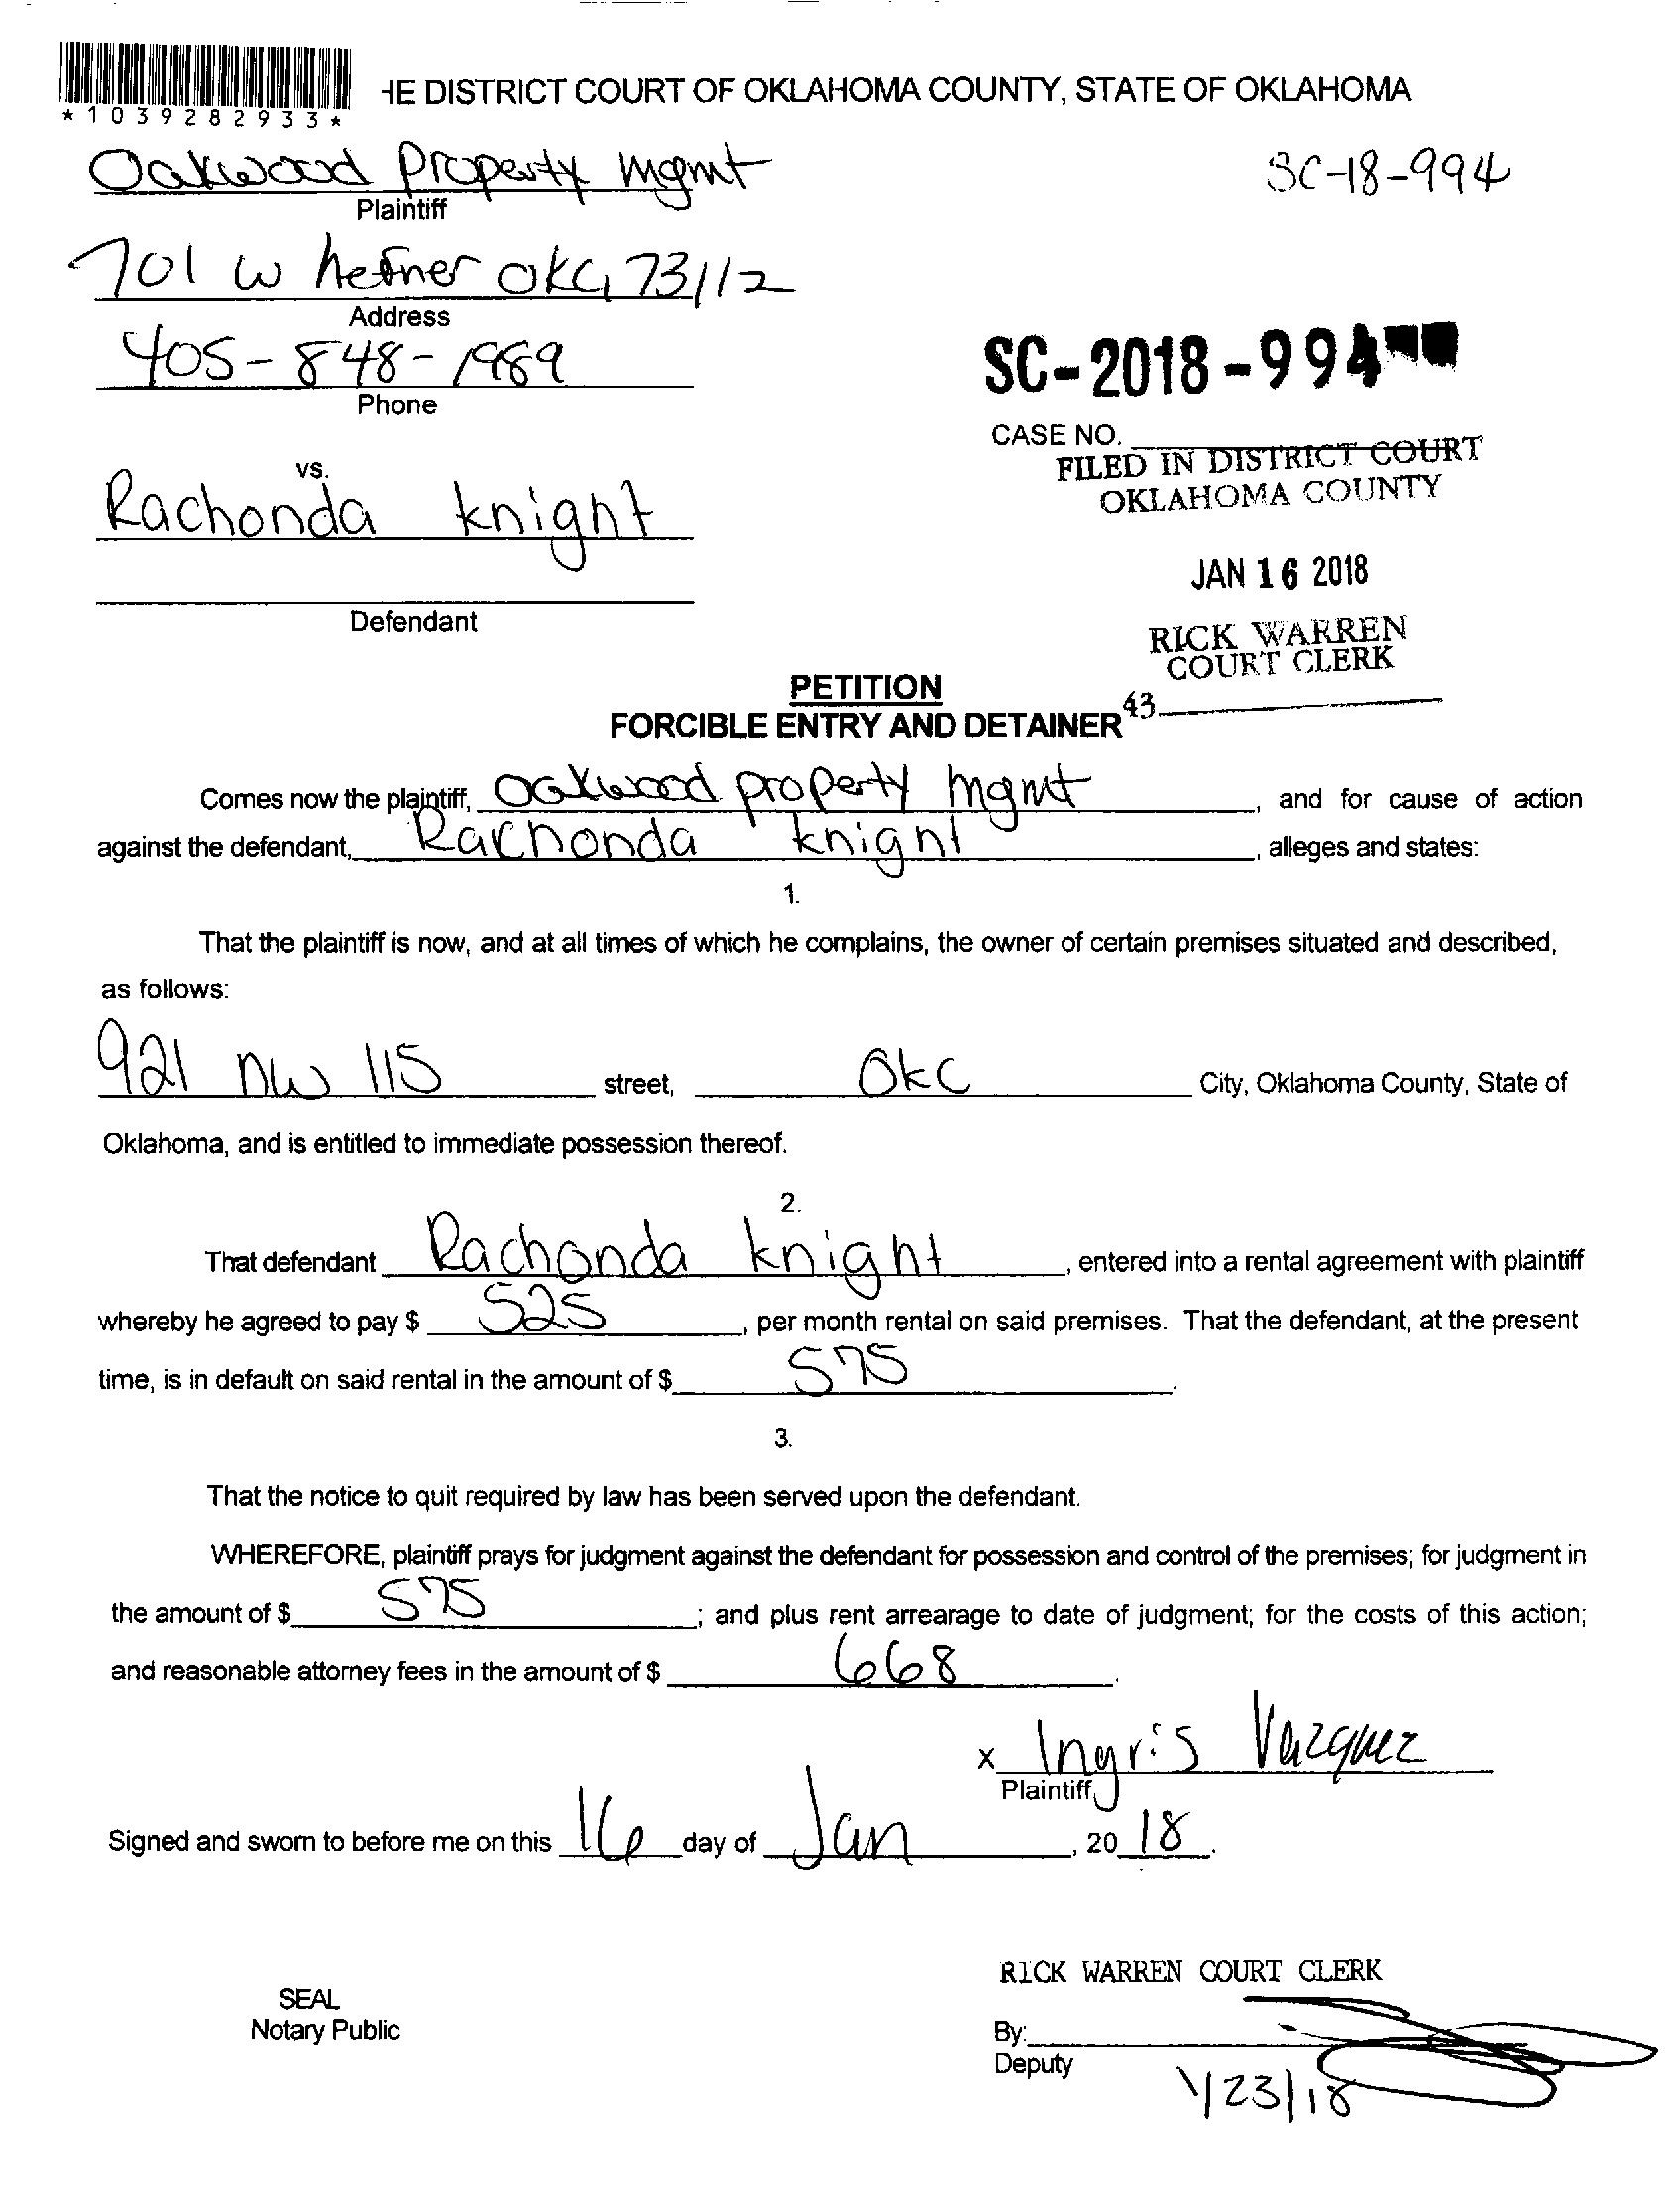 HE DISTRICT COURT OF OKLAHOMA COUNTY, STATE OF OKLAHOMA
*1039282933*
Oakwood Property Mgmt
SC-18-994
Plaintiff
701 W hefner OKC, 73112
Address
405-848-1989
Phone
SC-2018-994
CASE NO.
FILED IN DISTRICT COURT
OKLAHOMA COUNTY
vs.
Rachonda knight
JAN 16 2018
Defendant
RICK WARREN
COURT CLERK
43
PETITION
FORCIBLE ENTRY AND DETAINER
Comes now the plaintiff, Oakwood property Mgmt, and for cause of action
against the defendant, Rachonda knight, alleges and states:
1.
That the plaintiff is now, and at all times of which he complains, the owner of certain premises situated and described,
as follows:
921 NW 115 street, OKC City, Oklahoma County, State of
Oklahoma, and is entitled to immediate possession thereof.
2.
That defendant Rachonda knight, entered into a rental agreement with plaintiff
whereby he agreed to pay $ 525, per month rental on said premises. That the defendant, at the present
time, is in default on said rental in the amount of $ 575.
3.
That the notice to quit required by law has been served upon the defendant.
WHEREFORE, plaintiff prays for judgment against the defendant for possession and control of the premises; for judgment in
the amount of $ 575; and plus rent arrearage to date of judgment; for the costs of this action;
and reasonable attorney fees in the amount of $ 668.
x Ingris Vazquez
Plaintiff
Signed and sworn to before me on this 16 day of Jan, 20 18.
RICK WARREN COURT CLERK
SEAL
Notary Public
By:
Deputy
1/23/18